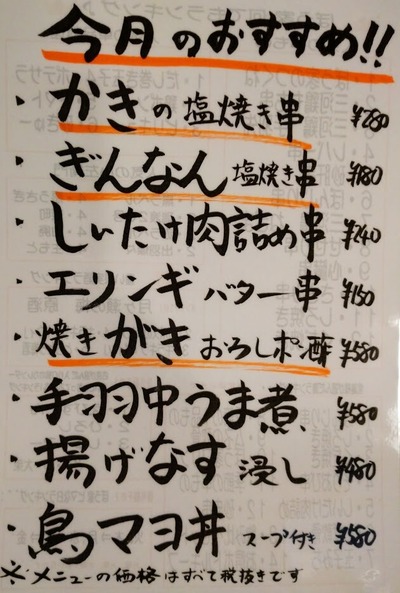 今月のおすすめ!!
・かきの塩焼き串 ¥280
・ぎんなん塩焼き串 ¥180
・しいたけ肉詰め串 ¥240
・エリンギバター串 ¥150
・焼きがきおろしポン酢 ¥580
・手羽中うま煮 ¥580
・揚げなす浸し ¥480
・鳥マヨ丼 スープ付き ¥580
※メニューの価格はすべて税抜きです